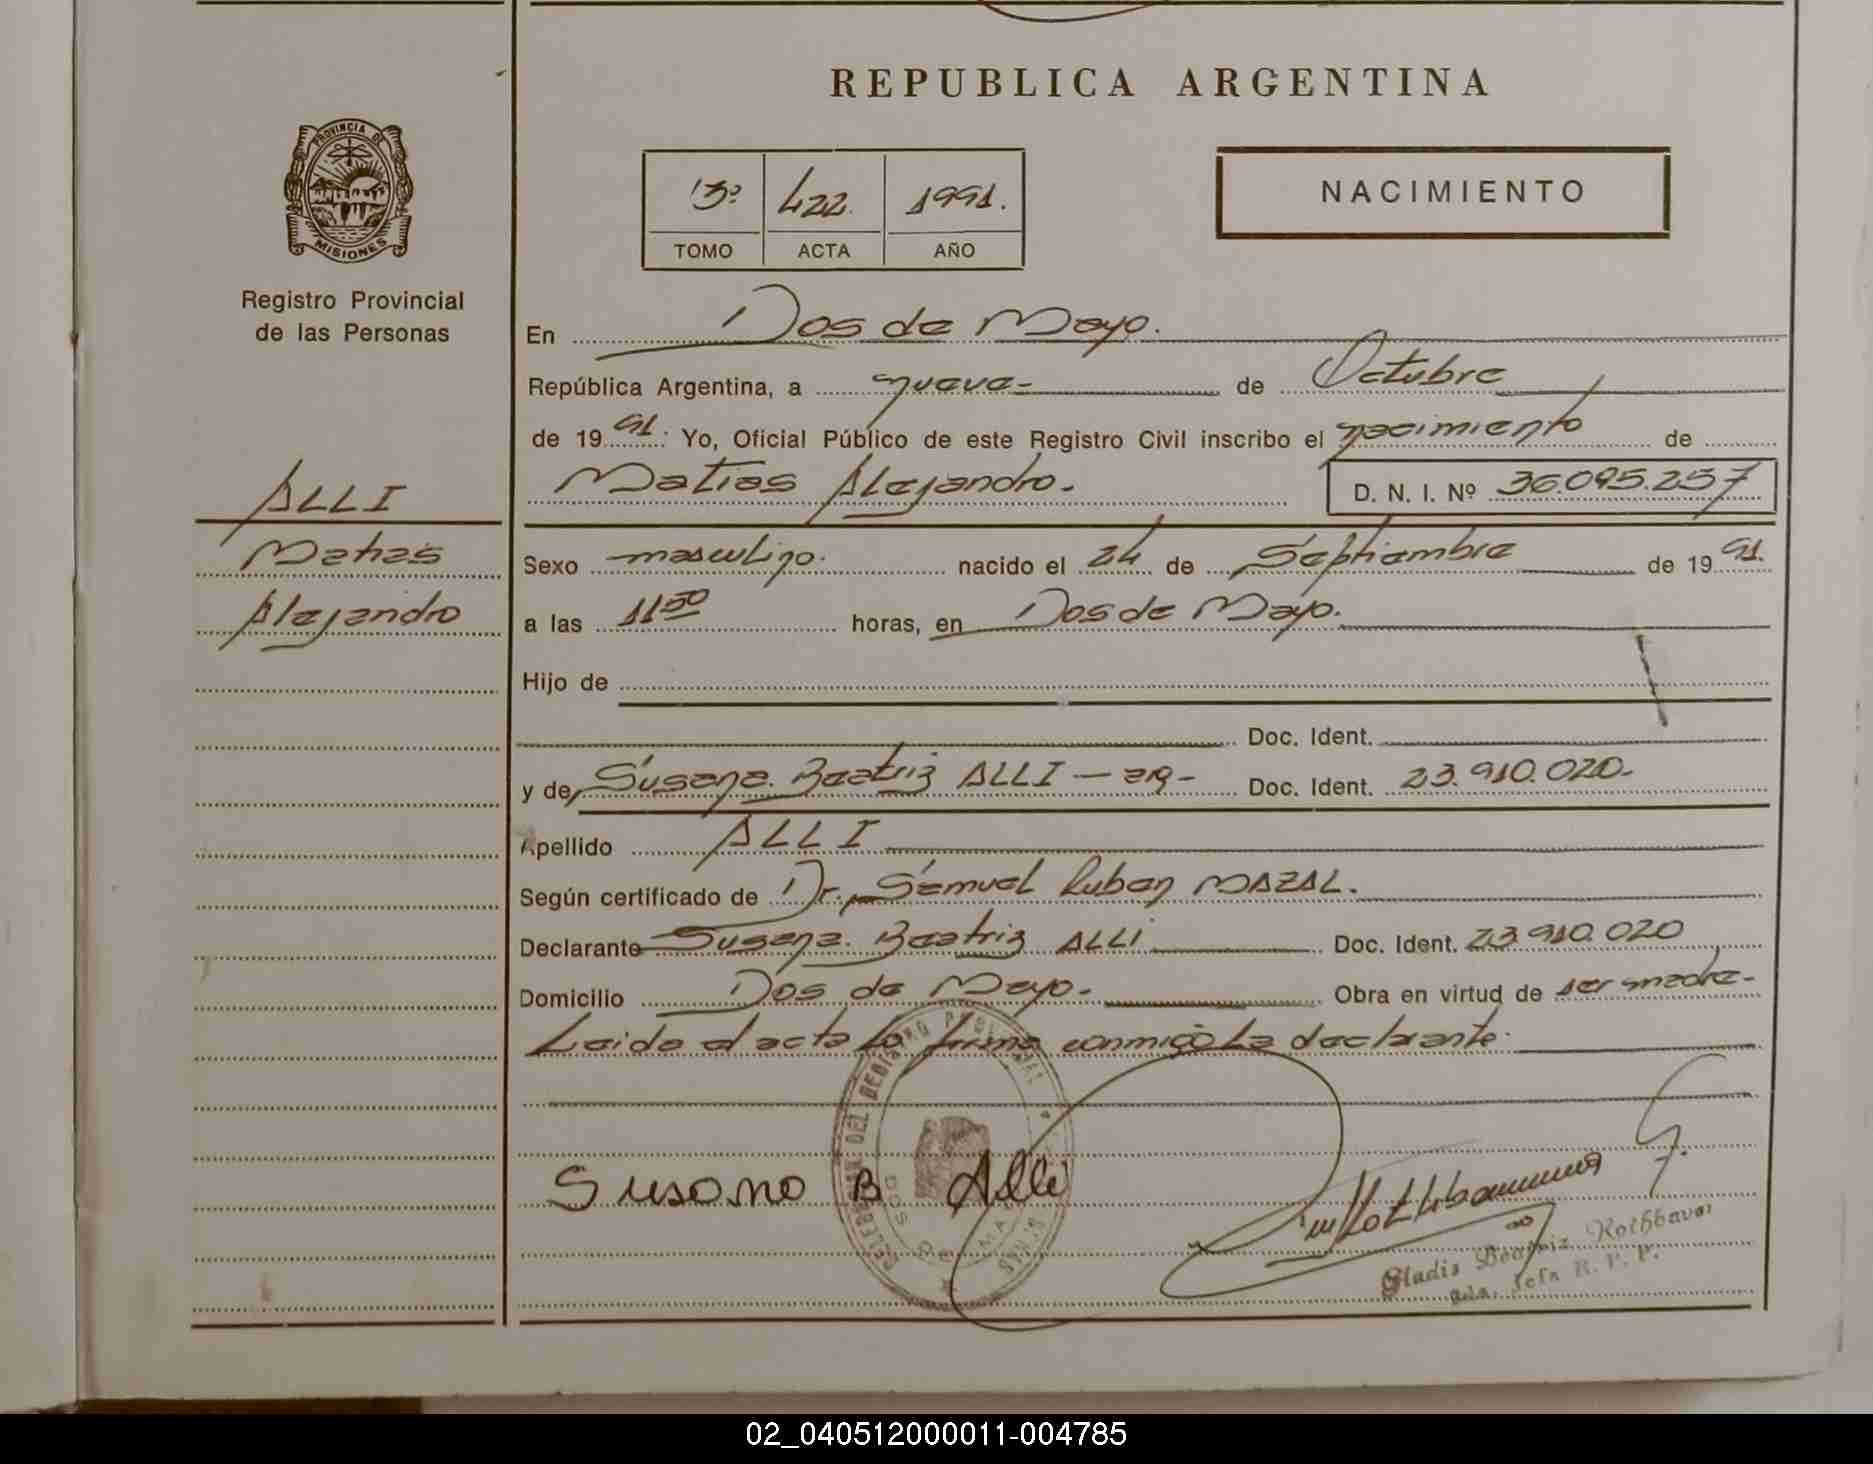 REPUBLICA ARGENTINA
PROVINCIA DE
MISIONES
Registro Provincial
de las Personas
13º 422. 1991.
TOMO ACTA AÑO
NACIMIENTO
En Dos de Mayo.
República Argentina, a nueve- de Octubre
de 1991. Yo, Oficial Público de este Registro Civil inscribo el nacimiento de
Matias Alejandro- D. N. I. Nº 36.095.257
ALLI
Matias
Alejandro
Sexo masculino. nacido el 24 de Septiembre de 1991.
a las 11 50 horas, en Dos de Mayo.
Hijo de
Doc. Ident.
y de Susana Beatriz ALLI - arg- Doc. Ident. 23.910.020-
Apellido ALLI
Según certificado de Dr. Samuel Ruben MAZAL.
Declarante Susana Beatriz ALLI Doc. Ident. 23.910.020
Domicilio Dos de Mayo. Obra en virtud de ser madre-
Leida el acta la firma conmigo la declarante.
Susana B Alli
Gladis Beatriz Rothbauer
R. P. P.
02_040512000011-004785